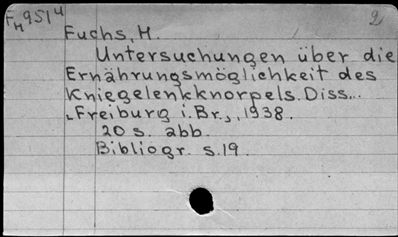 F4951 4
2
Fuchs, H.
Untersuchungen über die
Ernährungsmöglichkeit des
Kniegelenkknorpels. Diss...
Freiburg i. Br., 1938.
20 s. abb.
Bibliogr. s. 19.